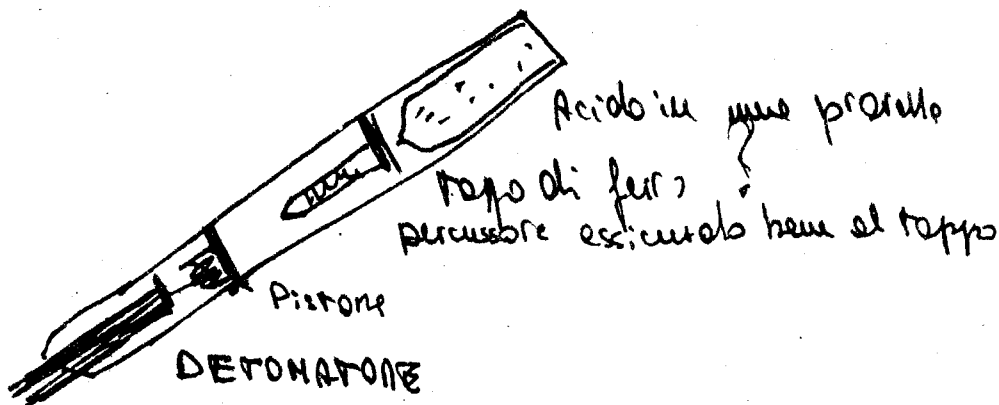 Acido in una provetta
tappo di ferro
percussore assicurato bene al tappo
Pistone
DETONATORE